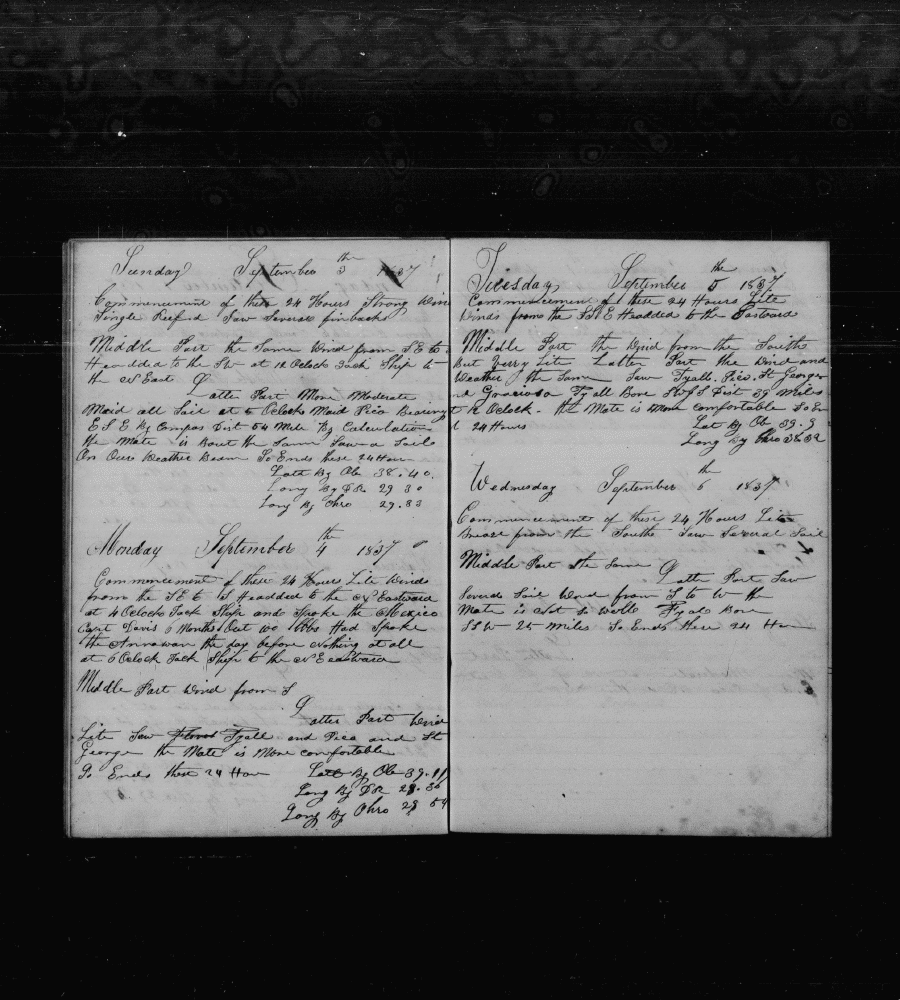 Sunday September 3th 1837
Commencement of these 24 Hours Strong Wind
Single Reefed Saw Several finbacks
Middle Part the Same Wind from SE to S
Headded to the SW at 12 Oclock Tack Ship to
the N East
Latter Part More Moderate
Maid all Sail at 5 Oclock Maid Pico Bearing
E S E By Compas Dist 54 Mile By Calculation
the Mate is Bout the Same Saw a Sail
On Ouer Weather Beam So Ends these 24 Hours
Latt By Ob 38.40
Long By DR 29 30
Long By Chro 29.23
Monday September 4th 1837
Commencement of these 24 Hours Lite Winds
from the SE to S Headded to the N Eastward
at 4 Oclock Tack Ship and Spoke the Mexico
Capt Davis 6 Months Out 100 bbs Had Spoke
the Annawan the day before Nothing at all
at 6 Oclock Tack Ship to the N Eeastward
Middle Part Wind from S
Latter Part Wind
Lite Saw Fyall and Pico and St
George the Mate is More comfortable
So Ends these 24 Hour
Latt By Ob 39.11
Long By DR 28.30
Long By Chro 28 54
Tuesday September 5the 1837
Commencement of these 24 Hours Lite
Winds from the SSE Headded to the Eastward
Middle Part the Wind from the Southe
But Verry Lite Latter Part the Wind and
Weather the Same Saw Fyall. Pico. St George
nd Graciosa Fyall Bore SWfS Dist 39 Miles
t 12 Oclock. the Mate is More comfortable So En
24 Hours
Lat By Ob 39.9
Long By Chro 28.32
Wednesday September 6th 1837
Commencement of these 24 Hours Lite
Brease from the Southe Saw Several Sail
Middle Part the Same
Latter Part Saw
Severds Sail Wind from S to W the
Mate is Not So Wello Fyal Bore
SSW 25 Miles So Ends these 24 Hou